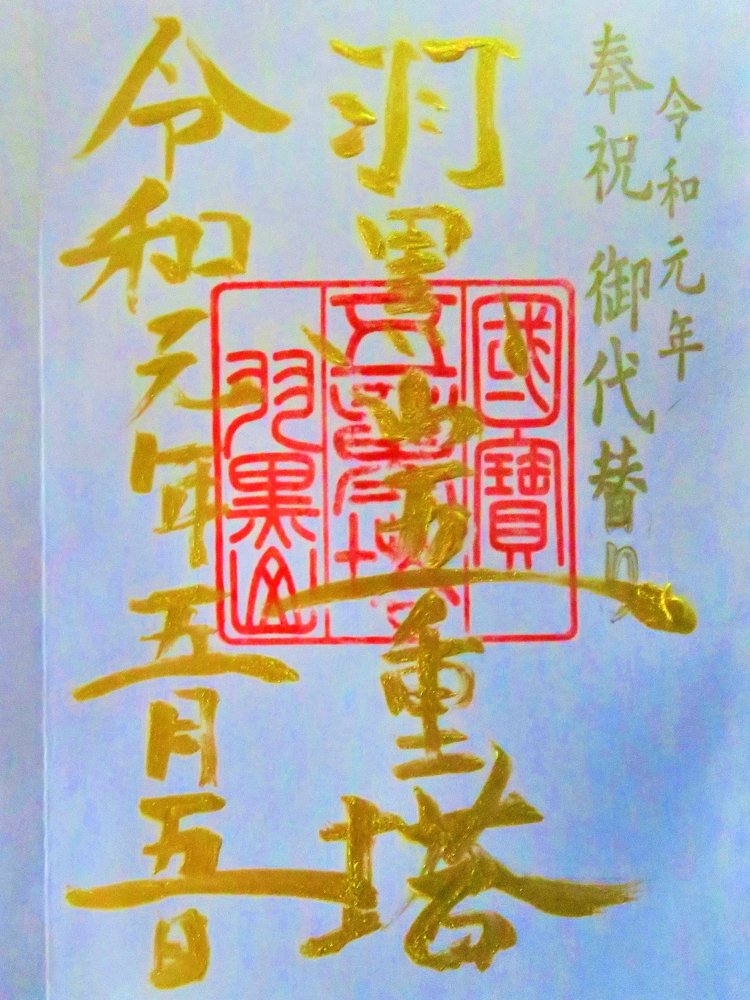 令和元年
奉祝 御代替り
羽黒山五重塔
令和元年五月五日
國寶
五重塔
羽黒山